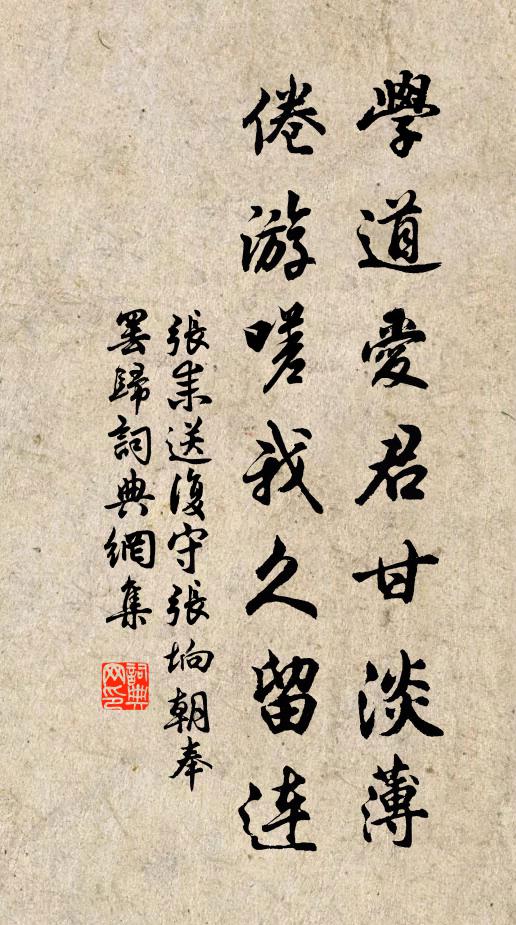 學道愛君甘淡薄
倦游嗟我久留連
張耒送復守張垧朝奉
罢歸詞典網集
詞典网印